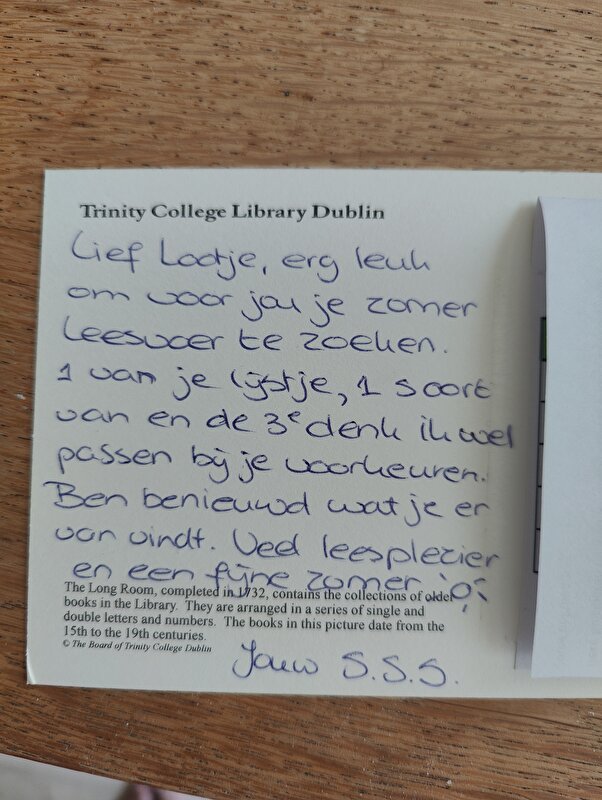 Trinity College Library Dublin
Lief Lootje, erg leuk
om voor jou je zomer
leesvoer te zoeken.
1 van je lijstje, 1 soort
van en de 3e denk ik wel
passen bij je voorkeuren.
Ben benieuwd wat je er
van vindt. Veel leesplezier
en een fijne zomer
The Long Room, completed in 1732, contains the collections of older
books in the Library. They are arranged in a series of single and
double letters and numbers. The books in this picture date from the
15th to the 19th centuries.
© The Board of Trinity College Dublin
Jouw S.S.S.